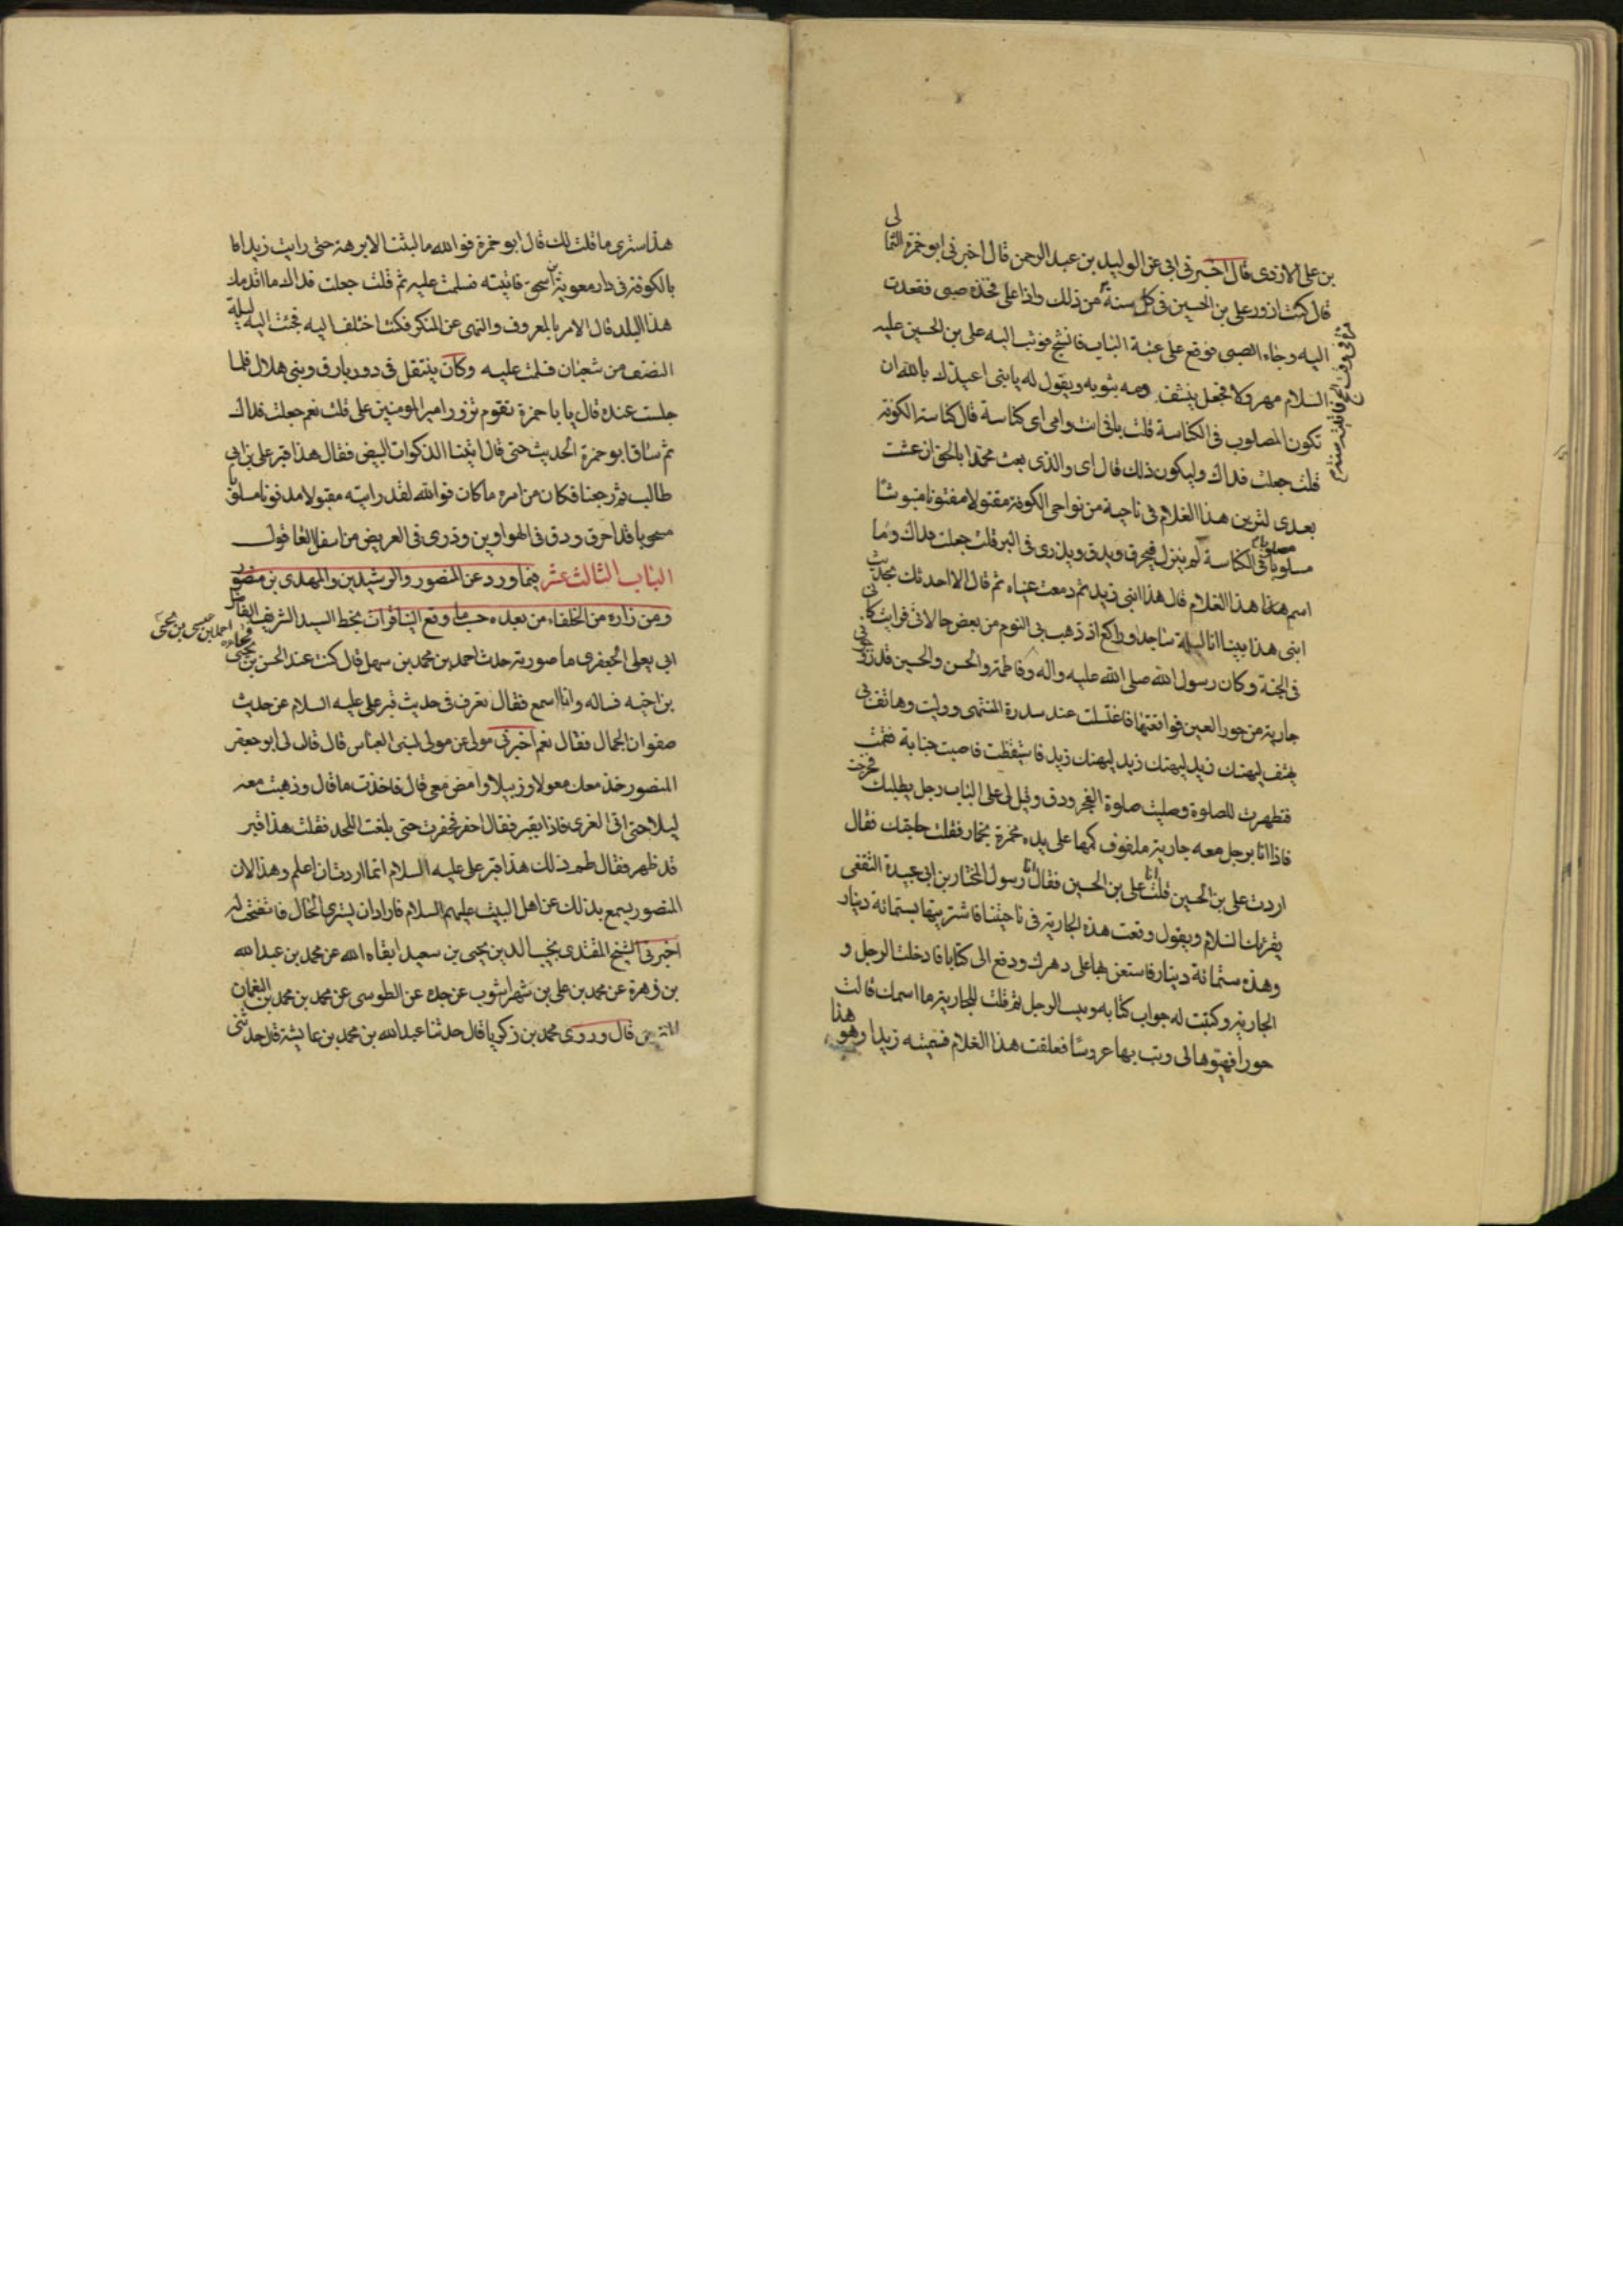 بن على الازدى قال اخبرنى ابى عن الوليد بن عبد الرحمن قال اخبرنى ابو حمزة الثمالى
قال كنت ازور على بن الحسين فى كل سنة مرة من ذلك واذا على فخذه صبى فقعدت
اليه وجاء الصبى فوقع على عتبة الباب فانشج فوثب اليه على بن الحسين عليه
السلام مهرولا فجعل ينشف دمه بثوبه ويقول له يا بنى اعيذك بالله ان
تكون المصلوب فى الكناسة قلت بابى انت وامى اى كناسة قال كناسة الكوفة
قلت جعلت فداك ويكون ذلك قال اى والذى بعث محمدا بالحق ان عشت
بعدى لترين هذا الغلام فى ناحية من نواحى الكوفة مقتولا مدفونا منبوشا
مسلوبا مصلوبا فى الكناسة ثم ينزل فيحرق ويدق ويذرى فى البر قلت جعلت فداك وما
اسم هذا هذا الغلام قال هذا ابنى زيد ثم دمعت عيناه ثم قال الا احدثك بحديث
ابنى هذا بينا انا ليلة ساجد وراكع اذ ذهب بى النوم من بعض حالاتى فرايت كانى
فى الجنة وكان رسول الله صلى الله عليه واله وفاطمة والحسن والحسين قد زوجونى
جارية من حور العين فواقعتها فاغتسلت عند سدرة المنتهى ووليت وهاتف بى
يهتف ليهنك زيد ليهنك زيد ليهنك زيد فاستيقظت فاصبت جنابة فقمت
فتطهرت للصلوة وصليت صلوة الفجر ودق وقيل لى على الباب رجل يطلبك فخرجت
فاذا انا برجل معه جارية ملفوف كمها على يده مخمرة بخمار فقلت حاجتك فقال
اردت على بن الحسين قلت انا على بن الحسين فقال انا رسول المختار بن ابى عبيدة الثقفى
يقرئك السلام ويقول وقعت هذه الجارية فى ناحيتنا فاشتريتها بستمائة دينار
وهذه ستمائة دينار فاستعن بها على دهرك ودفع الى كتابا فادخلت الرجل و
الجارية وكتبت له جواب كتابه وبيت الرجل ثم قلت للجارية ما اسمك قالت
حورا فهيوها لى وبت بها عروسا فعلقت هذا الغلام فسميته زيدا وهو هذا
هذا سترى ما قلت لك قال ابو حمزة فوالله ما لبثنا الا برهة حتى رايت زيدا
بالكوفة فى دار معوية بن اسحق فاتيته فسلمت عليه ثم قلت جعلت فداك ما اقدمك
هذا البلد قال الامر بالمعروف والنهى عن المنكر فكنت اختلف اليه فجئت اليه ليلة
النصف من شعبان فسلمت عليه وكان ينتقل فى دور بارق وبنى هلال فلما
جلست عنده قال يا با حمزة تقوم تزور امير المومنين على قلت نعم جعلت فداك
ثم ساق ابو حمزة الحديث حتى قال اتينا الذكوات البيض فقال هذا قبر على بن ابى
طالب ثم رجعنا فكان من امره ما كان فوالله لقد رايته مقتولا مدفونا مسلوبا
مسحوبا قد احرق ودق فى الهواوين وذرى فى العريض من اسفل العاقول
الباب الثالث عشر فيما ورد عن المنصور والرشيدين والمهدى بن منصور
ومن زاره من الخلفاء من بعده حسبما وقع الينا قرات بخط السيد الشريف الفاضل
ابى يعلى الجعفرى ما صورته حدث احمد بن محمد بن سهل قال كنت عند الحسن بن يحيى فجاءه احمد بن عيسى بن يحيى
بن اخيه فساله وانا اسمع فقال تعرف فى حديث قبر على عليه السلام عن حديث
صفوان الجمال فقال نعم اخبرنى مولى عن مولى لبنى العباس قال قال لى ابو جعفر
المنصور خذ معك معولا وزبيلا وامض معى قال فاخذت ما قال وذهبت معه
ليلا حتى اتى الغرى فاذا بقبر فقال احفر فحفرت حتى بلغت اللحد فقلت هذا قبر
قد ظهر فقال طم ذلك هذا قبر على عليه السلام انما اردت ان اعلم وهذا لان
المنصور يسمع بذلك عن اهل البيت عليهم السلام فاراد ان يستبرئ الحال فاتضحت له
اخبرنى الشيخ المقتدى نجيب الدين يحيى بن سعيد ابقاه الله عن محمد بن عبد الله
بن زهرة عن محمد بن على بن شهراشوب عن جده عن الطوسى عن محمد بن محمد بن النعمان
قال وروى محمد بن زكريا قال حدثنا عبد الله بن محمد بن عايشة قال حدثنى